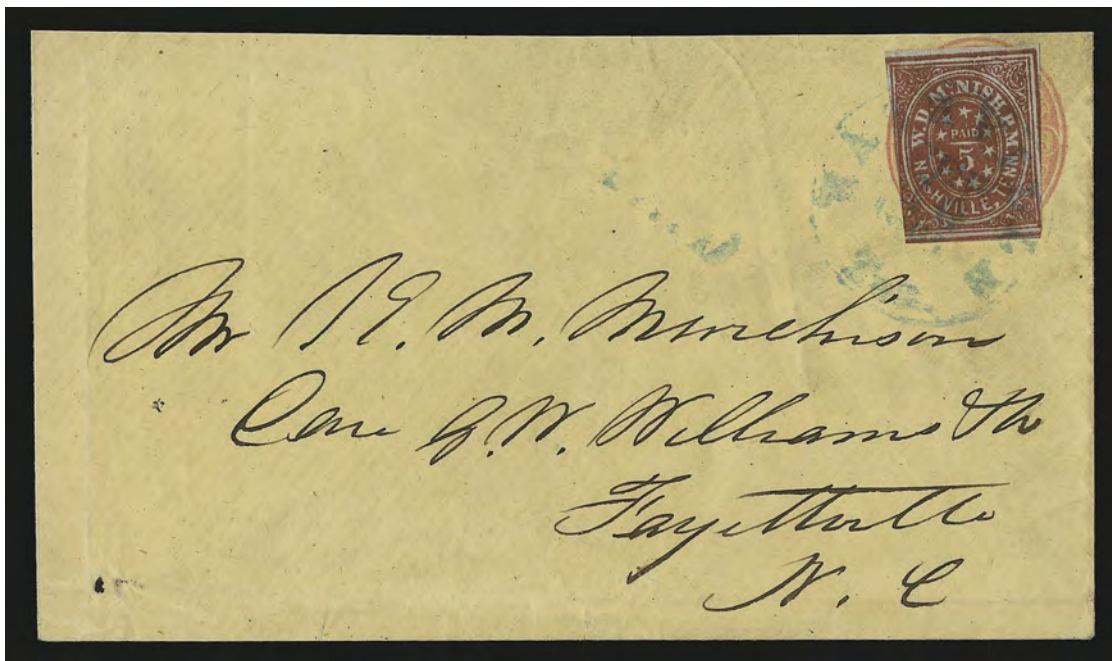 W.D. McNISH, P.M.
PAID
5
NASHVILLE, TENN.
Mr M. Murchison
Care G. W. Williams &
Fayetteville
N. C